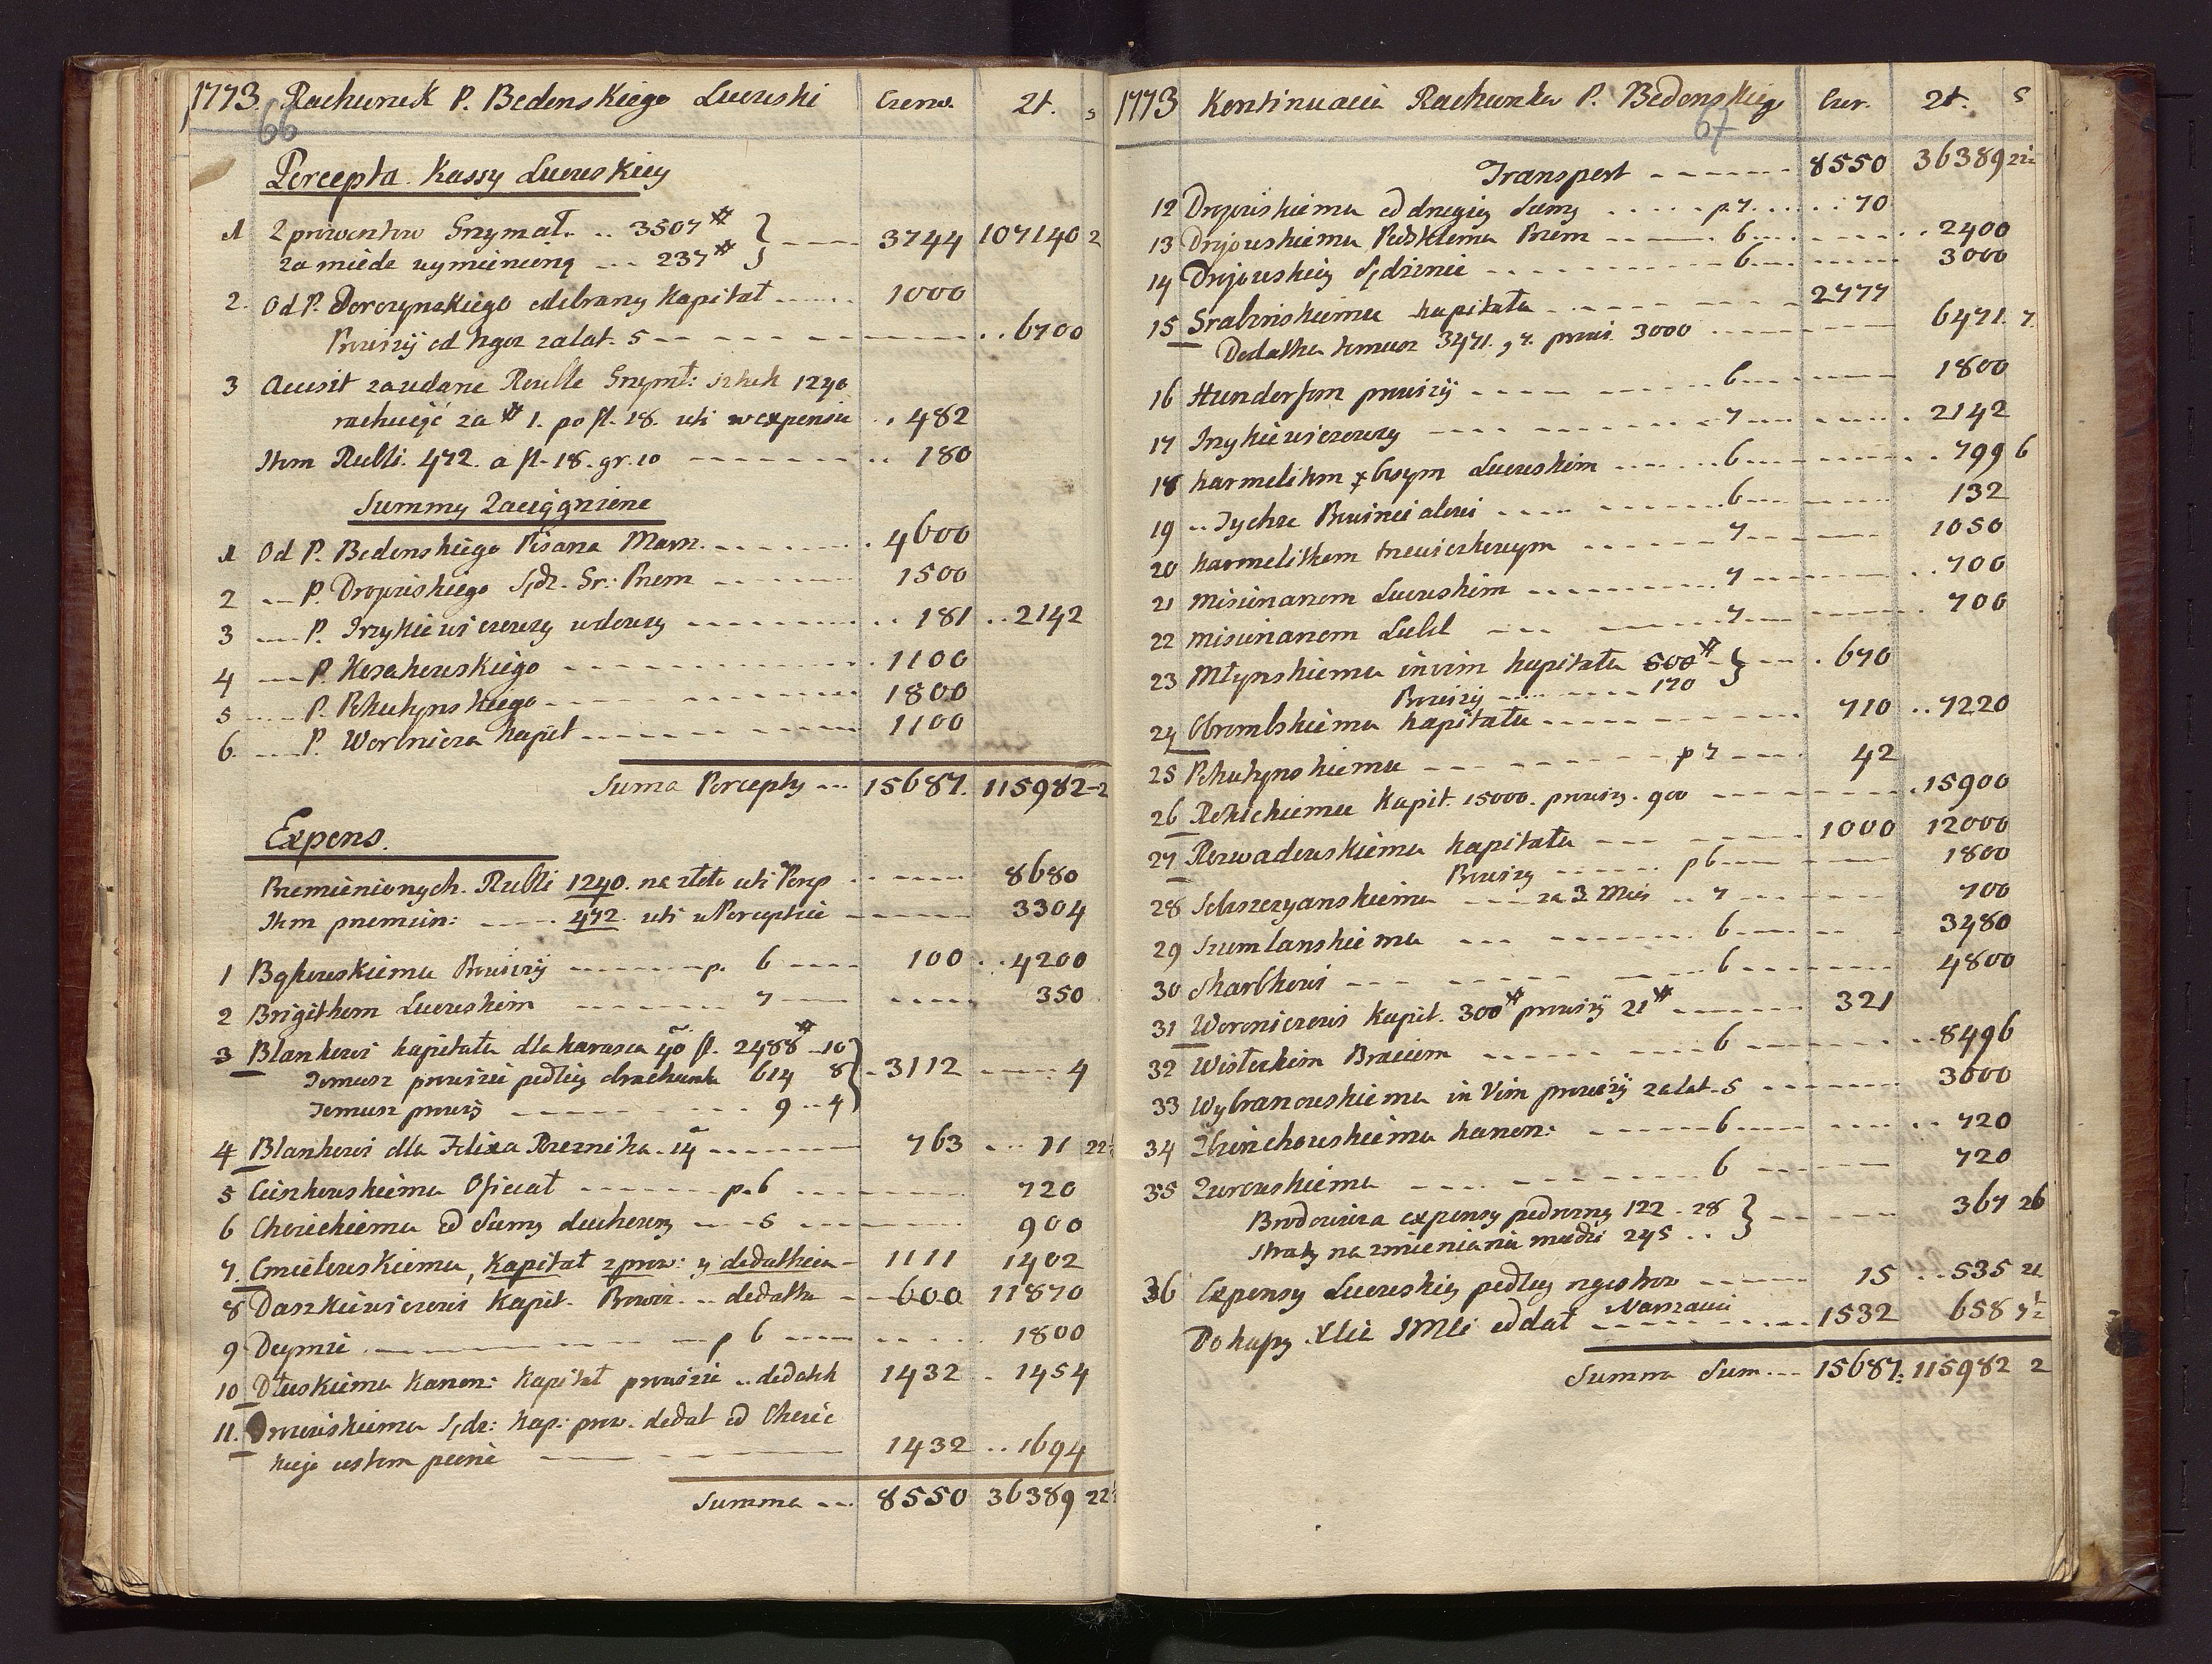 1773. Rachunek P. Bedonskiego Lucuski Czerw. Zł. s
66
Percepta Kassy Lucuskiey
1 Z prowentow Grzymał. .. 3507# } --- 3744 107140 2
za miedz wymienioną --- 237#
2. Od P. Doroszynskiego odebrany Kapitał ...... 1000
Prowizÿ od tegoz za lat. 5 -- - - - .. 6700
3 Accusit zawydane Ruble Grzymł: sztuk 1240
rachuiąc za # 1. po fl. 18. uti w expensie .. 482
Itm Rubli. 472. a fl. 18. gr. 10 ------- .. 180
Summy Zaciągnione
1 Od P. Bedonskiego Pisarza Marsz. ------- . 4600
2 --- P. Droiowskiego Sędz. Gr: Przem ------- 1500
3 --- P. Jrzykiewiczowey wdowy --------- .. 181 .. 2142
4 --- P. Kosakowskiego ----------- . 1100
5 ---- P. Rhutynskiego - ------- 1800
6. --- P. Woronicza Kapit ------- 1100
Suma Percepty ... 15687. 115982-2
Expens.
Przemienionych. Rubli 1240. na złote uti Percep .. ----- 8680
Itm przemien: ----- 472. uti w Percepcie ------ 3304
1 Bąkowskiemu Prowizÿ ------- p. 6 ---- 100 .. 4200
2 Brigitkom Lucuskim ------- 7 --- ----- 350
3 Blankowi kapitału dla karasia 40 fl. 2488# -10 } - 3112 ----- 4
Temusz prowizii podług obrachunku 614 8
Temusz prowizÿ ------- 9 .. 4
4 Blankowi dla Felixa Rzeznika. 14 ------- 763 ... 11 22½
5 Ciszkowskiemu Oficiał ------- p. 6 ------- 720
6 Choieckiemu od Sumy duchowey ---- 5 ------ 900
7. Cmielowskiemu, Kapitał z prow: y dodatkiem - 1111 1402
8 Daszkiewiczowi Kapit. Prowiz. .. dodatku --- 600 11870
9 Deymie .---------- p 6 ---- .... 1800
10 Dłuskiemu Kanon: Kapitał prowizie .. dodatk 1432 . 1454
11. Sędz: Kap: prow. dodat od Choiec
kiego ustempienie ----- -------- 1432 .. 1694
Summa --. 8550 36389 22½
1773 Kontinuacia Rachunku P. Bedonskiego Czer. Zł. s
67
Transport ------- 8550 36389 22½
12 Droiowskiemu od drugiey Sumy ..... p. 7 ..... 70
13 Droiowskiemu Podstolemu Przem ------ 6 ---- .. 2400
14 Droiowskiey Sędzinie --------- 6 --- ---- 3000
15 Grabinskiemu kapitału ------ ---- 2777
Dodatku temusz 3471. 7. prowi. 3000 -------- 6471. 7.
16 Hundorfom prowizÿ ---- ------ 6 ------- 1800
17 Jrzykiewiczowey ------- 7 --- ---- . 2142
18 karmelitom bosym Lucuskim ....... 6 -------- . 799 6
19 .. Tychze Prowincialowi ---- ------ 6 ------- 132
20 karmelitkom trzewiczkowym ------- 7 ------- 1050
21 Misionarzom Lucuskim --------- 7 ------- . . 700
22 misionarzom Lubl --- ------ 7 ------ . 700
23 Młynskiemu in vim kapitału 600# } ---- . 670
Prowizÿ ------- 120
24 Obrombskiemu kapitału ---------- 710 .. 7220
25 Rhutynskiemu -------- p 7 ---- 42
26 Rokickiemu Kapit. 15000. prowiz. 900 ------- . 15900
27 Rozwadowskiemu kapitału --- ----- 1000 12000
Prowizy ------ p 6 ------- 1800
28 ----- za 3 Mies .. 7 ------ 700
29 Szumlanskiemu --- ------- 6 ------ 3480
30 Skarbkowi --- - ------ 6 ------- 4800
31 Woronizowi Kapit. 300# prowizÿ 21# ------- 321
32 Wisłockim Braciom ------ ---- 6 ------- .. 8496
33 Wybranowskiemu in Vim prowizÿ za lat-5 ------- 3000
34 kanon: ------- 6 ------ .. 720
35 Zurowskiemu -------- 6 ------ 720
Brodowicza expensy podrozny 122 - 28 } ------ 367 26
Straty na zmieniania miedzi 245 ..
36 Expensy Lucuskiey podług regestrow ------- 15 .. 535 21
Do kapy Xcie JMci oddał Warszawie ------- 1532 658 7½
Summa Sum ... 15687: 115982 2